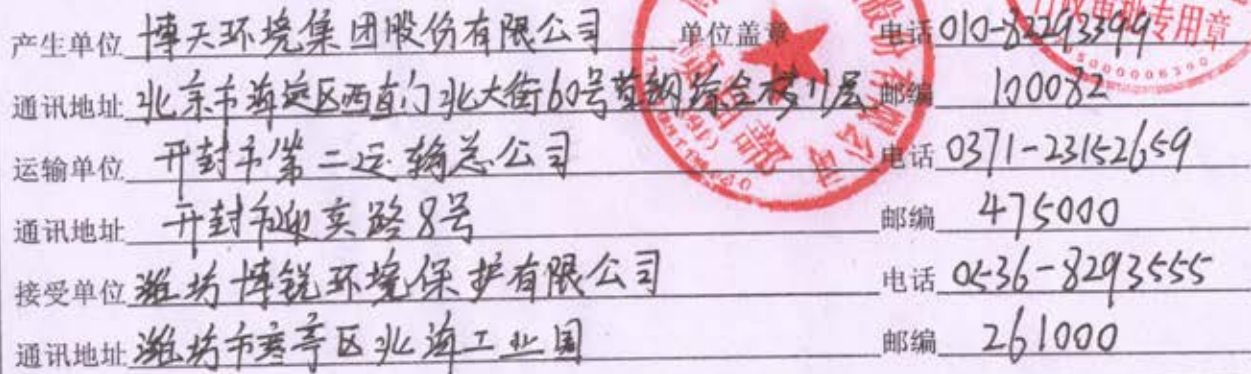 产生单位 博天环境集团股份有限公司 单位盖章 电话 010-82293399
通讯地址 北京市海淀区西直门北大街60号首钢综合楼11层 邮编 100082
运输单位 开封市第二运输总公司 电话 0371-23152659
通讯地址 开封市迎宾路8号 邮编 475000
接受单位 潍坊博锐环境保护有限公司 电话 0536-8293555
通讯地址 潍坊市寒亭区北海工业园 邮编 261000
股份有限公司
行政审批专用章